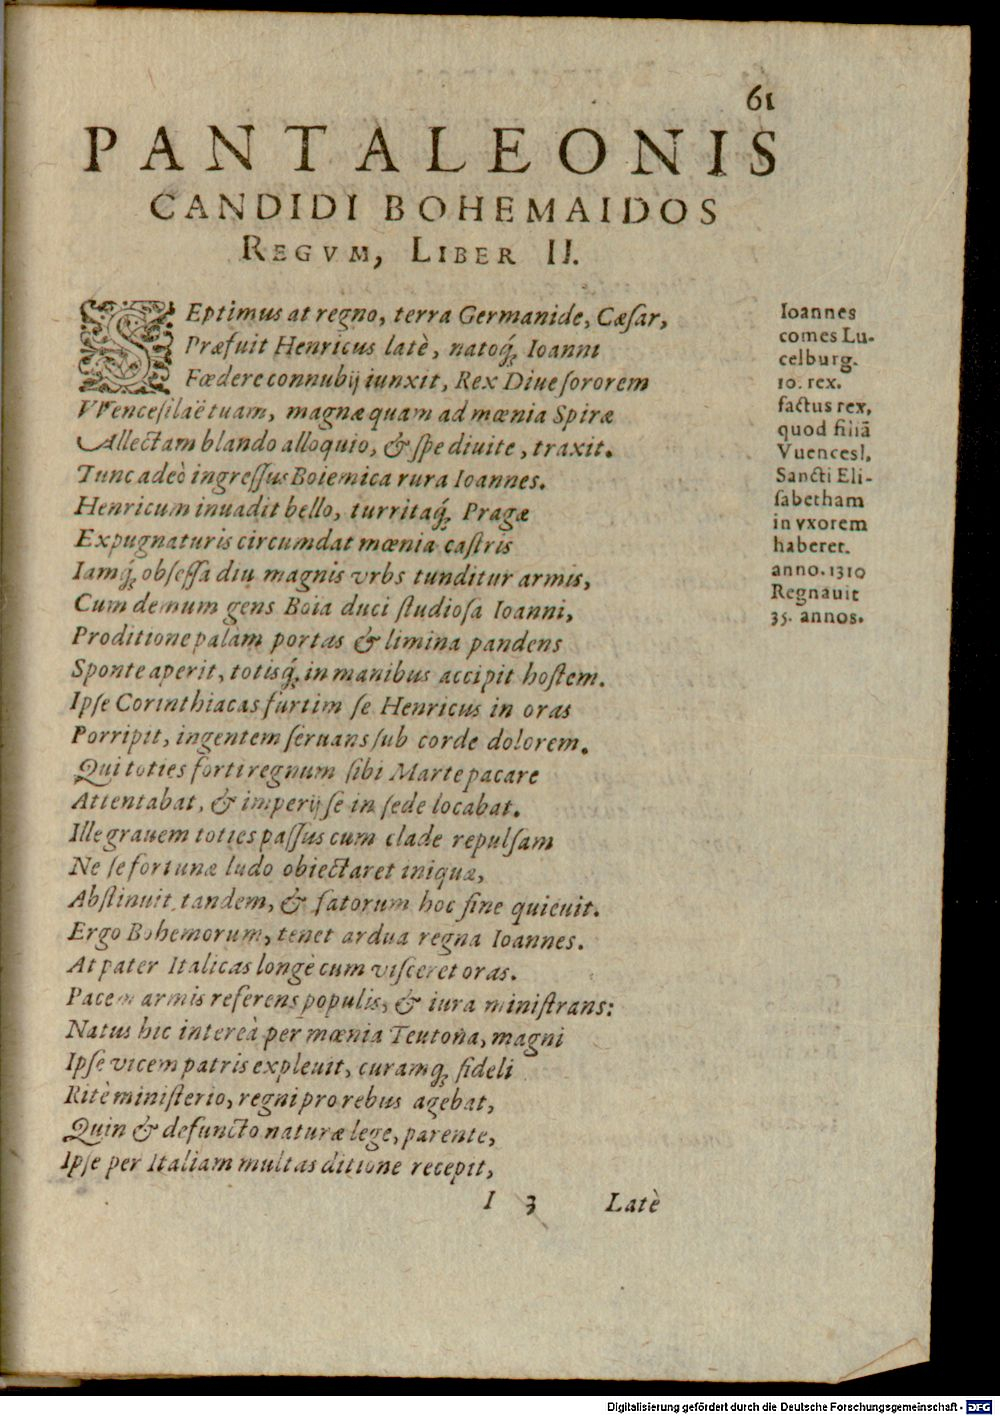 61
PANTALEONIS
CANDIDI BOHEMAIDOS
REGVM, LIBER II.
SEptimus at regno, terra Germanide, Cæsar,
Præfuit Henricus latè, natoq́; Ioanni
Fœdere connubij iunxit, Rex Diue sororem
VVenceſilaë tuam, magnæ quam ad mœnia Spiræ
Allectam blando alloquio, & ſpe diuite, traxit.
Tunc adeò ingreſſus Boiemica rura Ioannes.
Henricum inuadit bello, turritaq́; Pragæ
Expugnaturis circumdat mœnia caſtris
Iamq́; obſeſſa diu magnis vrbs tunditur armis,
Cum demum gens Boia duci ſtudioſa Ioanni,
Proditione palam portas & limina pandens
Sponte aperit, totisq́; in manibus accipit hoſtem.
Ipſe Corinthiacas furtim ſe Henricus in oras
Porripit, ingentem ſeruans ſub corde dolorem.
Qui toties forti regnum ſibi Marte pacare
Attentabat, & imperij ſe in ſede locabat.
Ille grauem toties paſſus cum clade repulſam
Ne ſe fortunæ ludo obiectaret iniquæ,
Abſtinuit tandem, & fatorum hoc fine quieuit.
Ergo Bohemorum, tenet ardua regna Ioannes.
At pater Italicas longè cum viſceret oras.
Pacem armis referens populis, & iura miniſtrans:
Natus hic intereà per mœnia Teutona, magni
Ipſe vicem patris expleuit, curamq́; fideli
Ritè miniſterio, regni pro rebus agebat,
Quin & defuncto naturæ lege, parente,
Ipſe per Italiam multas ditione recepit,
I 3 Latè
Ioannes
comes Lu-
celburg.
10. rex.
factus rex,
quod filiã
Vuencesl.
Sancti Eli-
ſabetham
in vxorem
haberet.
anno. 1310
Regnauit
35. annos.
Digitalisierung gefördert durch die Deutsche Forschungsgemeinschaft - DFG